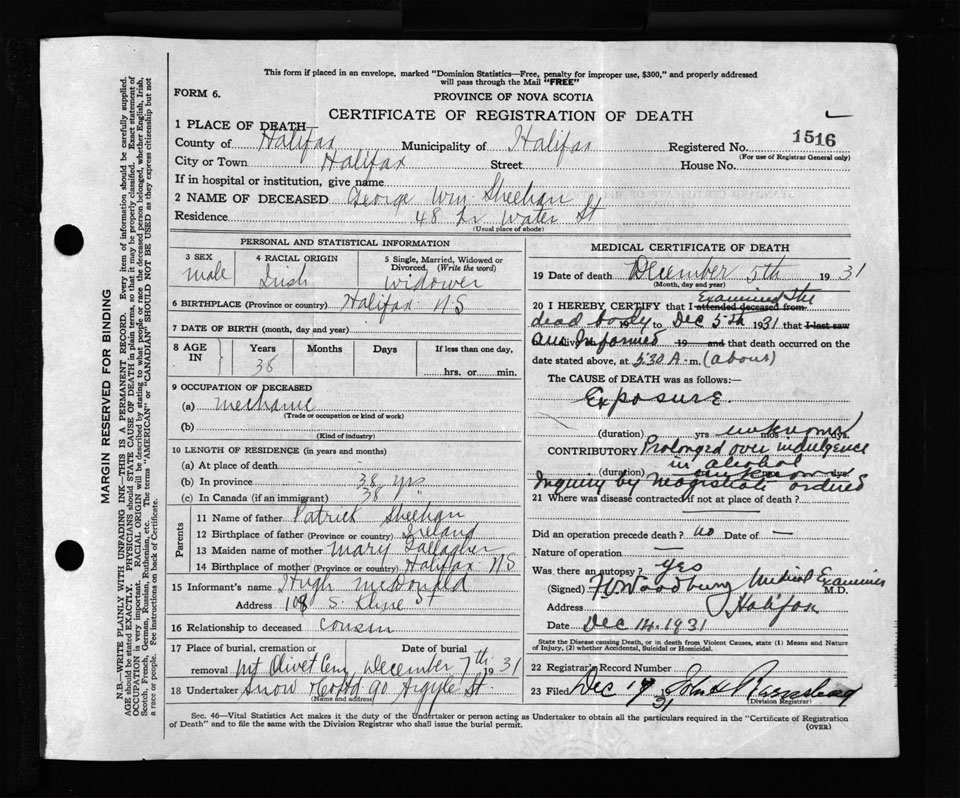 This form if placed in an envelope, marked "Dominion Statistics—Free, penalty for improper use, $300," and properly addressed
will pass through the Mail "FREE"
FORM 6.
PROVINCE OF NOVA SCOTIA
CERTIFICATE OF REGISTRATION OF DEATH
1 PLACE OF DEATH—
County of Halifax Municipality of Halifax Registered No. 1516
(For use of Registrar General only)
City or Town Halifax Street House No.
If in hospital or institution, give name
2 NAME OF DECEASED George Wm Sheehan
Residence 48 Lr Water St
(Usual place of abode)
PERSONAL AND STATISTICAL INFORMATION
3 SEX male
4 RACIAL ORIGIN Irish
5 Single, Married, Widowed or Divorced. (Write the word) widower
6 BIRTHPLACE (Province or country) Halifax N S
7 DATE OF BIRTH (month, day and year)
8 AGE IN Years Months Days If less than one day,
38 hrs. or min.
9 OCCUPATION OF DECEASED
(a) mechanic
(Trade or occupation or kind of work)
(b)
(Kind of industry)
10 LENGTH OF RESIDENCE (in years and months)
(a) At place of death
(b) In province 38 yrs
(c) In Canada (if an immigrant) 38 "
Parents
11 Name of father Patrick Sheehan
12 Birthplace of father (Province or country) Ireland
13 Maiden name of mother Mary Gallagher
14 Birthplace of mother (Province or country) Halifax N S
15 Informant's name Hugh McDonald
Address 108 S. Kline St
16 Relationship to deceased cousin
17 Place of burial, cremation or removal Mt Olivet Cem Date of burial December 7th 1931
18 Undertaker Snow & Co Ltd 90 Argyle St
(Name and address)
MEDICAL CERTIFICATE OF DEATH
19 Date of death December 5th 1931
(Month, day and year)
20 I HEREBY CERTIFY that I attended deceased from Examined the
dead body 19 to Dec 5th 1931 that I last saw
alive 19 and that death occurred on the
am Informed
date stated above, at 5.30 A. m. (about)
The CAUSE OF DEATH was as follows:—
Exposure.
(duration) yrs mos dys. unknown
CONTRIBUTORY Prolonged over indulgence
in alcohol
(duration) unknown dys
Inquiry by Magistrate ordered
21 Where was disease contracted if not at place of death?
Did an operation precede death? no Date of —
Nature of operation —
Was there an autopsy? yes
(Signed) Woodbury Medical Examiner M.D.
Address Halifax
Date Dec 14. 1931
State the Disease Causing Death, or in death from Violent Causes, state (1) Means and Nature
of Injury, (2) whether Accidental, Suicidal or Homicidal.
22 Registrar's Record Number
23 Filed Dec 19 31 John H
(Division Registrar)
Sec. 46—Vital Statistics Act makes it the duty of the Undertaker or person acting as Undertaker to obtain all the particulars required in the "Certificate of Registration
of Death" and to file the same with the Division Registrar who shall issue the burial permit.
(OVER)
MARGIN RESERVED FOR BINDING
N.B.—WRITE PLAINLY WITH UNFADING INK—THIS IS A PERMANENT RECORD. Every item of information should be carefully supplied.
AGE should be stated EXACTLY. PHYSICIANS should STATE CAUSE OF DEATH in plain terms, so that it may be properly classified. Exact statement of
OCCUPATION is very important. RACIAL ORIGIN will be described by stating to what people or race the deceased person belonged, whether English, Irish,
Scotch, French, German, Russian, Ruthenian, etc. The terms "AMERICAN" or "CANADIAN" SHOULD NOT BE USED as they express citizenship but not
a race or people. See instructions on back of Certificate.